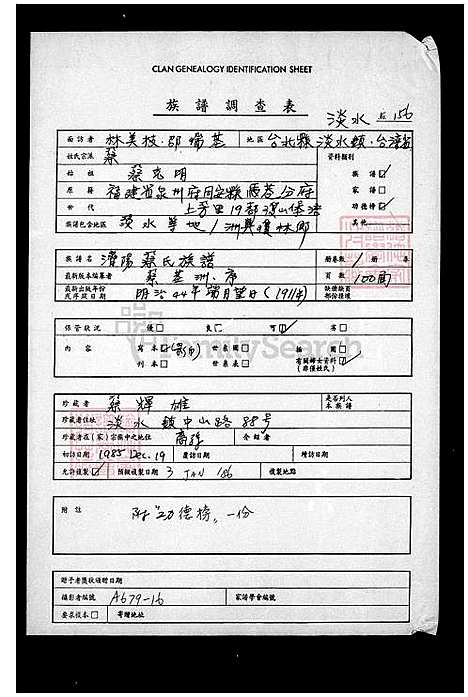 CLAN GENEALOGY IDENTIFICATION SHEET
族譜調查表
淡水 156
面訪者 林美枝.邵端蕙 地區 台北縣淡水鎮.台灣省
姓氏宗派 蔡 資料類別
始祖 蔡克明 族譜 ☑
原籍 福建省泉州府同安縣 分府 家譜 □
世代 上芳里19都 功德榜 ☑
族譜包含地區 淡水等地 其他
族譜名 濟陽蔡氏族譜 冊卷數 1 冊 卷
最新版本編纂者 蔡蓋洲.序 頁數 100
最新出版年份或序跋日期 明治44年 月望日(1911年) 缺損缺頁部份採樣
保管狀況 優□ 良□ 可☑ 劣□
內容 寫本☑ 世系圖□ 插圖□
刊本□ 世系表□ 有關婦女資料☑(非僅姓氏)
珍藏者 蔡輝雄 是否列入本族譜
珍藏者住址 淡水鎮中山路88号
珍藏者在(家)宗族中之地位 裔孫 介紹者
初訪日期 1985 Dec. 19 覆訪日期 續訪日期
允許複製☑ 預擬複製日期 3 JAN '86 複製地點
FamilySearch
附註 附"功德榜"一份
贈予者獎狀頒贈日期
攝影者編號 A679-16 家譜學會編號
要求複本□ 寄贈地址